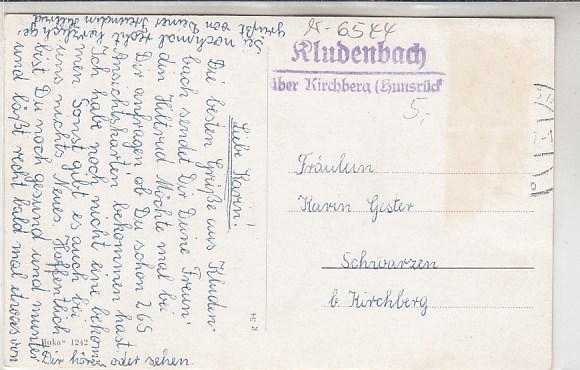 Liebe Karin!
Die besten Grüße aus Kluden-
bach sendet Dir Deine Freun-
din Hiltrud Möchte mal bei
Dir anfragen ob Du schon 265
Ansichtskarten bekommen hast.
Ich habe noch nicht eine bekom-
men. Sonst gibt es auch bei
uns nichts Neues. Hoffentlich
bist Du noch gesund und munter
und läßt recht bald mal etwas von
Dir hören oder sehen.
Sei nochmal recht herzlich ge-
grüßt von Deiner Freundin Hiltrud
N-6544
Kludenbach
über Kirchberg (Hunsrück
5,-
Fräulein
Karin Gester
Schwarzen
b. Kirchberg
Ruka" 1242